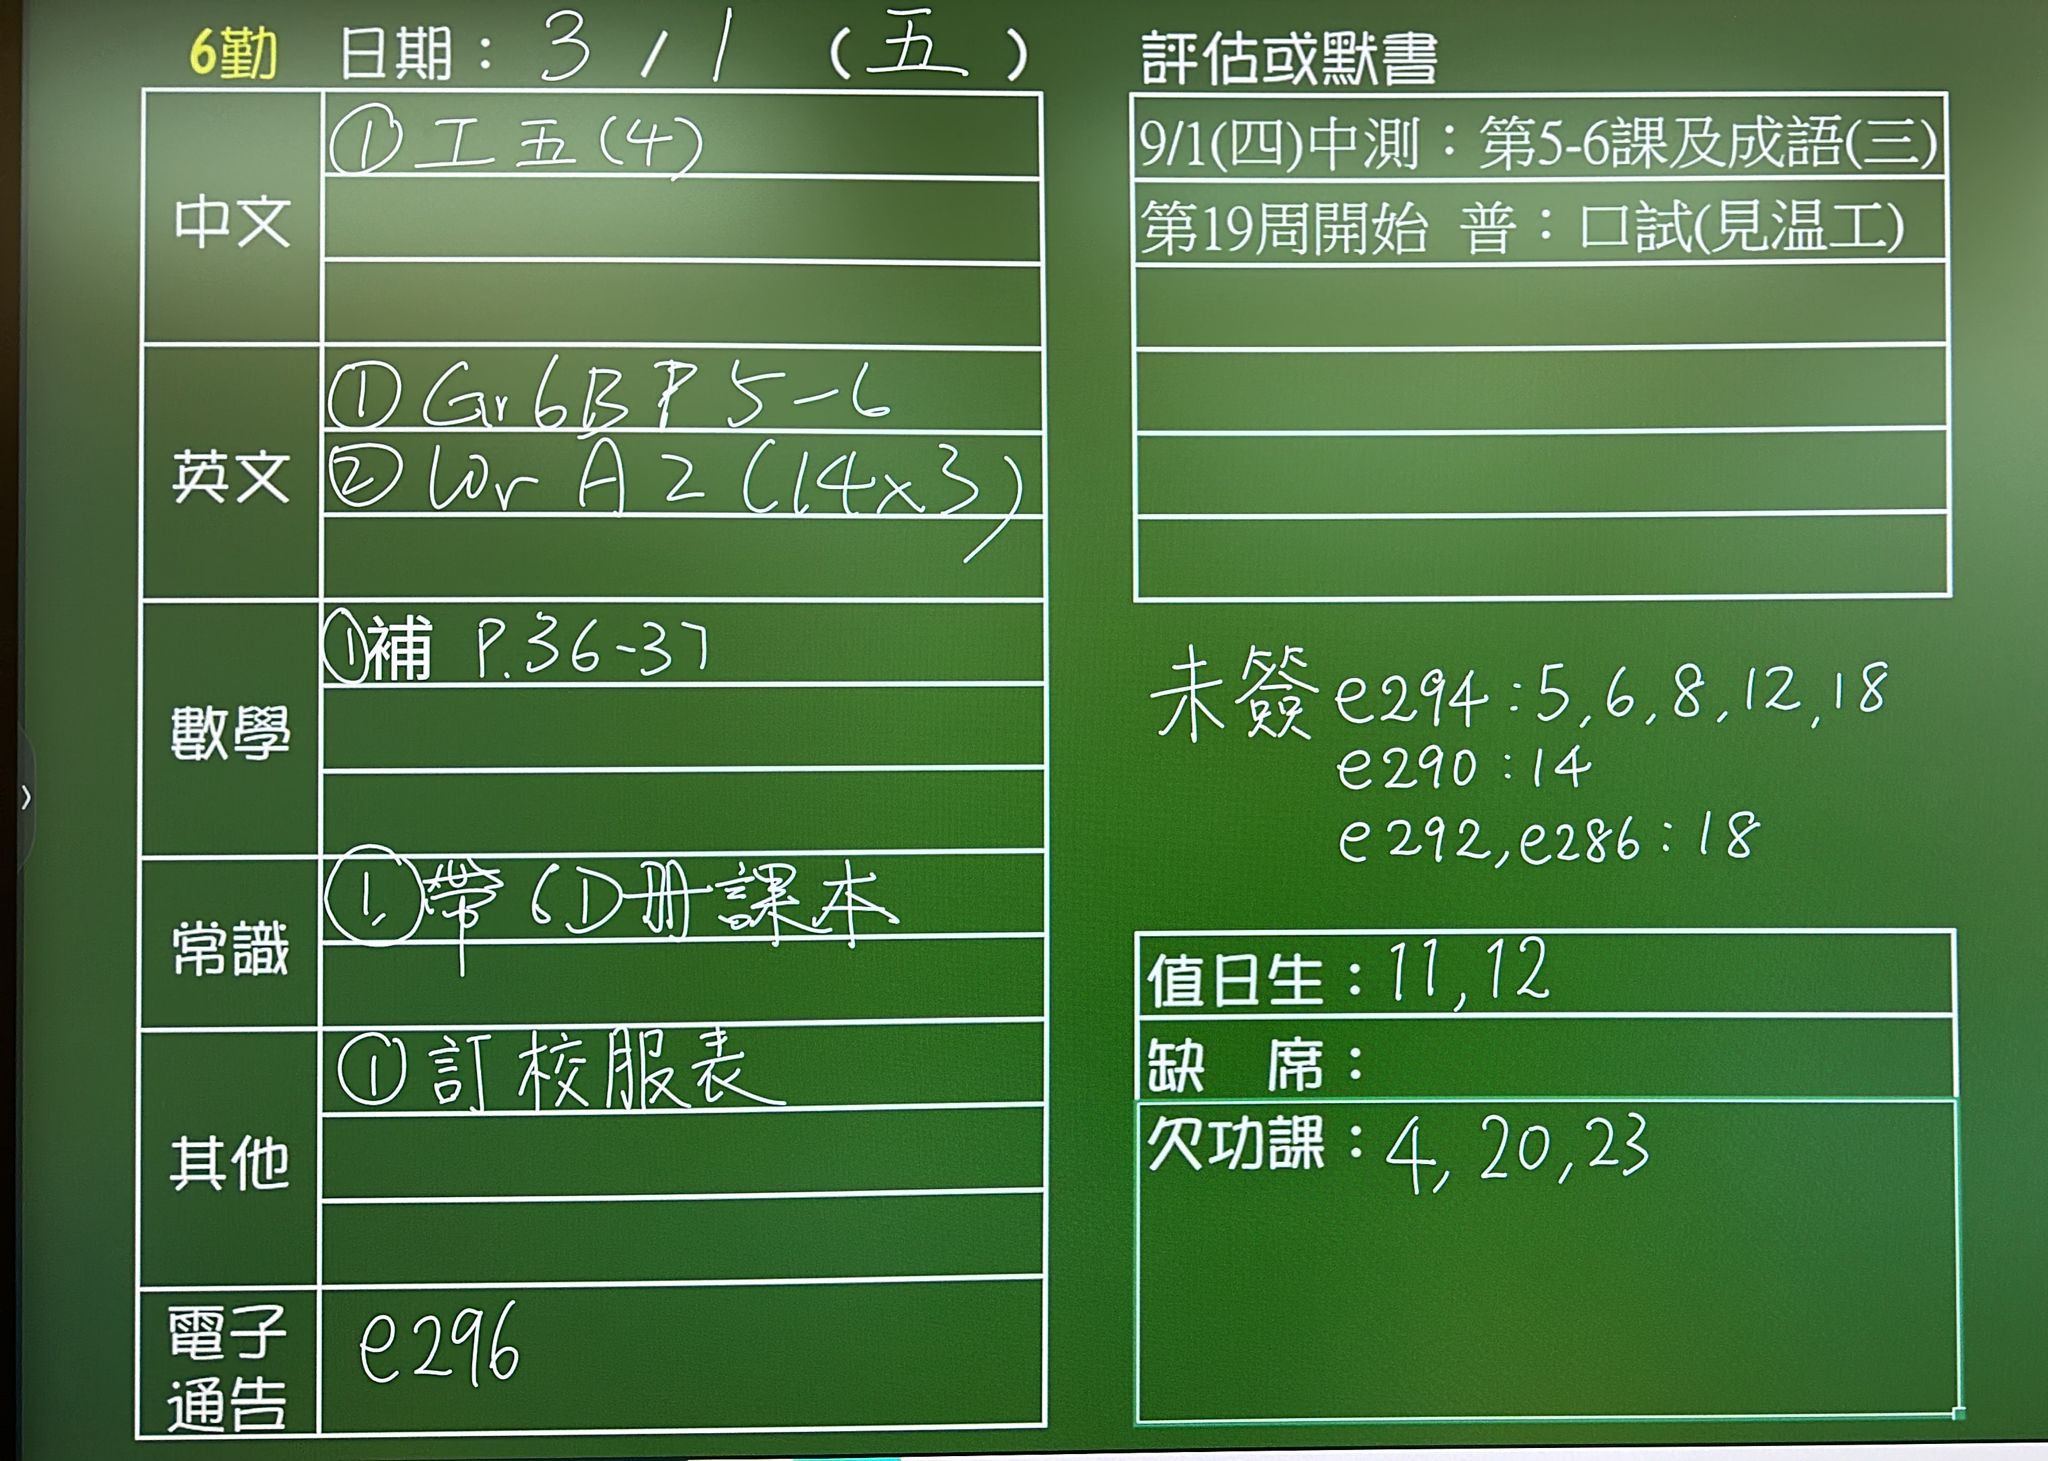 6勤 日期：3/1（五）
中文
①工五(4)
英文
①Gr 6B P 5-6
②Wr A2 (14x3)
數學
①補 P.36-37
常識
①帶6D冊課本
其他
①訂校服表
電子
通告
e296
評估或默書
9/1(四)中測：第5-6課及成語(三)
第19周開始 普：口試(見温工)
未簽 e294:5,6,8,12,18
e290:14
e292,e286:18
值日生：11,12
缺 席：
欠功課：4,20,23